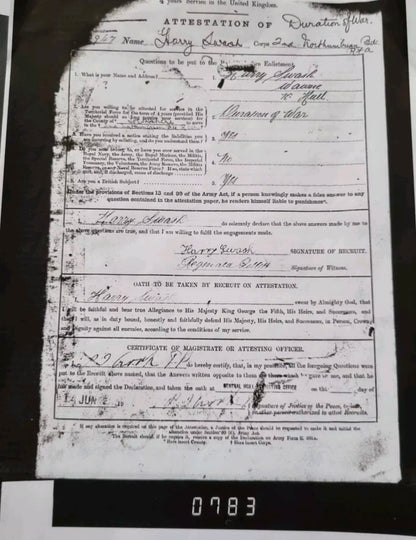 4 years Service in the United Kingdom.
ATTESTATION OF Duration of War.
247 Name Harry Swash Corps 2nd Northumbrian
Questions to be put to the Enlistment.
1. What is your Name and Address? Harry Swash
Hull
Are you willing to be attested for service in the
Territorial Force for the term of 4 years (provided His
Majesty should so long require your services) for the
County of
to serve in the
Duration of War
Have you received a notice stating the liabilities you
are incurring by enlisting, and do you understand them? Yes
Do you now belong to, or have you ever served in the
Royal Navy, the Army, the Royal Marines, the Militia,
the Special Reserve, the Territorial Force, the Imperial
Yeomanry, the Volunteers, the Army Reserve, the Militia
Reserve, or any Naval Reserve Force? If so, state which
unit, and, if discharged, cause of discharge No
Are you a British Subject? Yes
Under the provisions of Sections 13 and 99 of the Army Act, if a person knowingly makes a false answer to any
question contained in the attestation paper, he renders himself liable to punishment.
I, Harry Swash do solemnly declare that the above answers made by me to
the above questions are true, and that I am willing to fulfil the engagements made.
Harry Swash SIGNATURE OF RECRUIT.
Signature of Witness.
OATH TO BE TAKEN BY RECRUIT ON ATTESTATION.
Harry Swash swear by Almighty God, that
I will be faithful and bear true Allegiance to His Majesty King George the Fifth, His Heirs, and Successors, and that
I will, as in duty bound, honestly and faithfully defend His Majesty, His Heirs, and Successors, in Person, Crown,
and Dignity against all enemies, according to the conditions of my service.
CERTIFICATE OF MAGISTRATE OR ATTESTING OFFICER.
J.P. do hereby certify, that, in my presence, all the foregoing Questions were
put to the Recruit above named, that the Answers written opposite to them are those which he gave to me, and that he
has made and signed the Declaration, and taken the oath at on this day of
JUN
Signature of Justice of the Peace,
other person authorized to attest Recruits.
If any alteration is required on this page of the Attestation, a Justice of the Peace should be requested to make it and initial the
alteration under Section 80 (6), Army Act.
The Recruit should, if he require it, receive a copy of the Declaration on Army Form E. 501A.
* Here insert County. † Here insert Corps.
0783